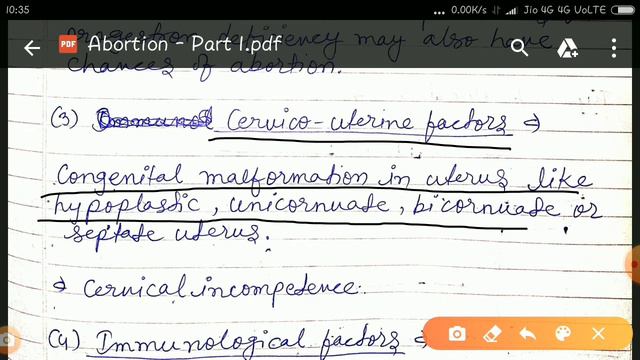 10:35 ... 0.00K/s Jio 4G 4G VoLTE
PDF Abortion - Part 1.pdf
deficiency may also have
chances of abortion.
(3) Cervico-uterine factors ⇒
Congenital malformation in uterus like
hypoplastic, unicornuate, bicornuate or
septate uterus.
→ Cervical incompetence.
(4) Immunological factors ⇒